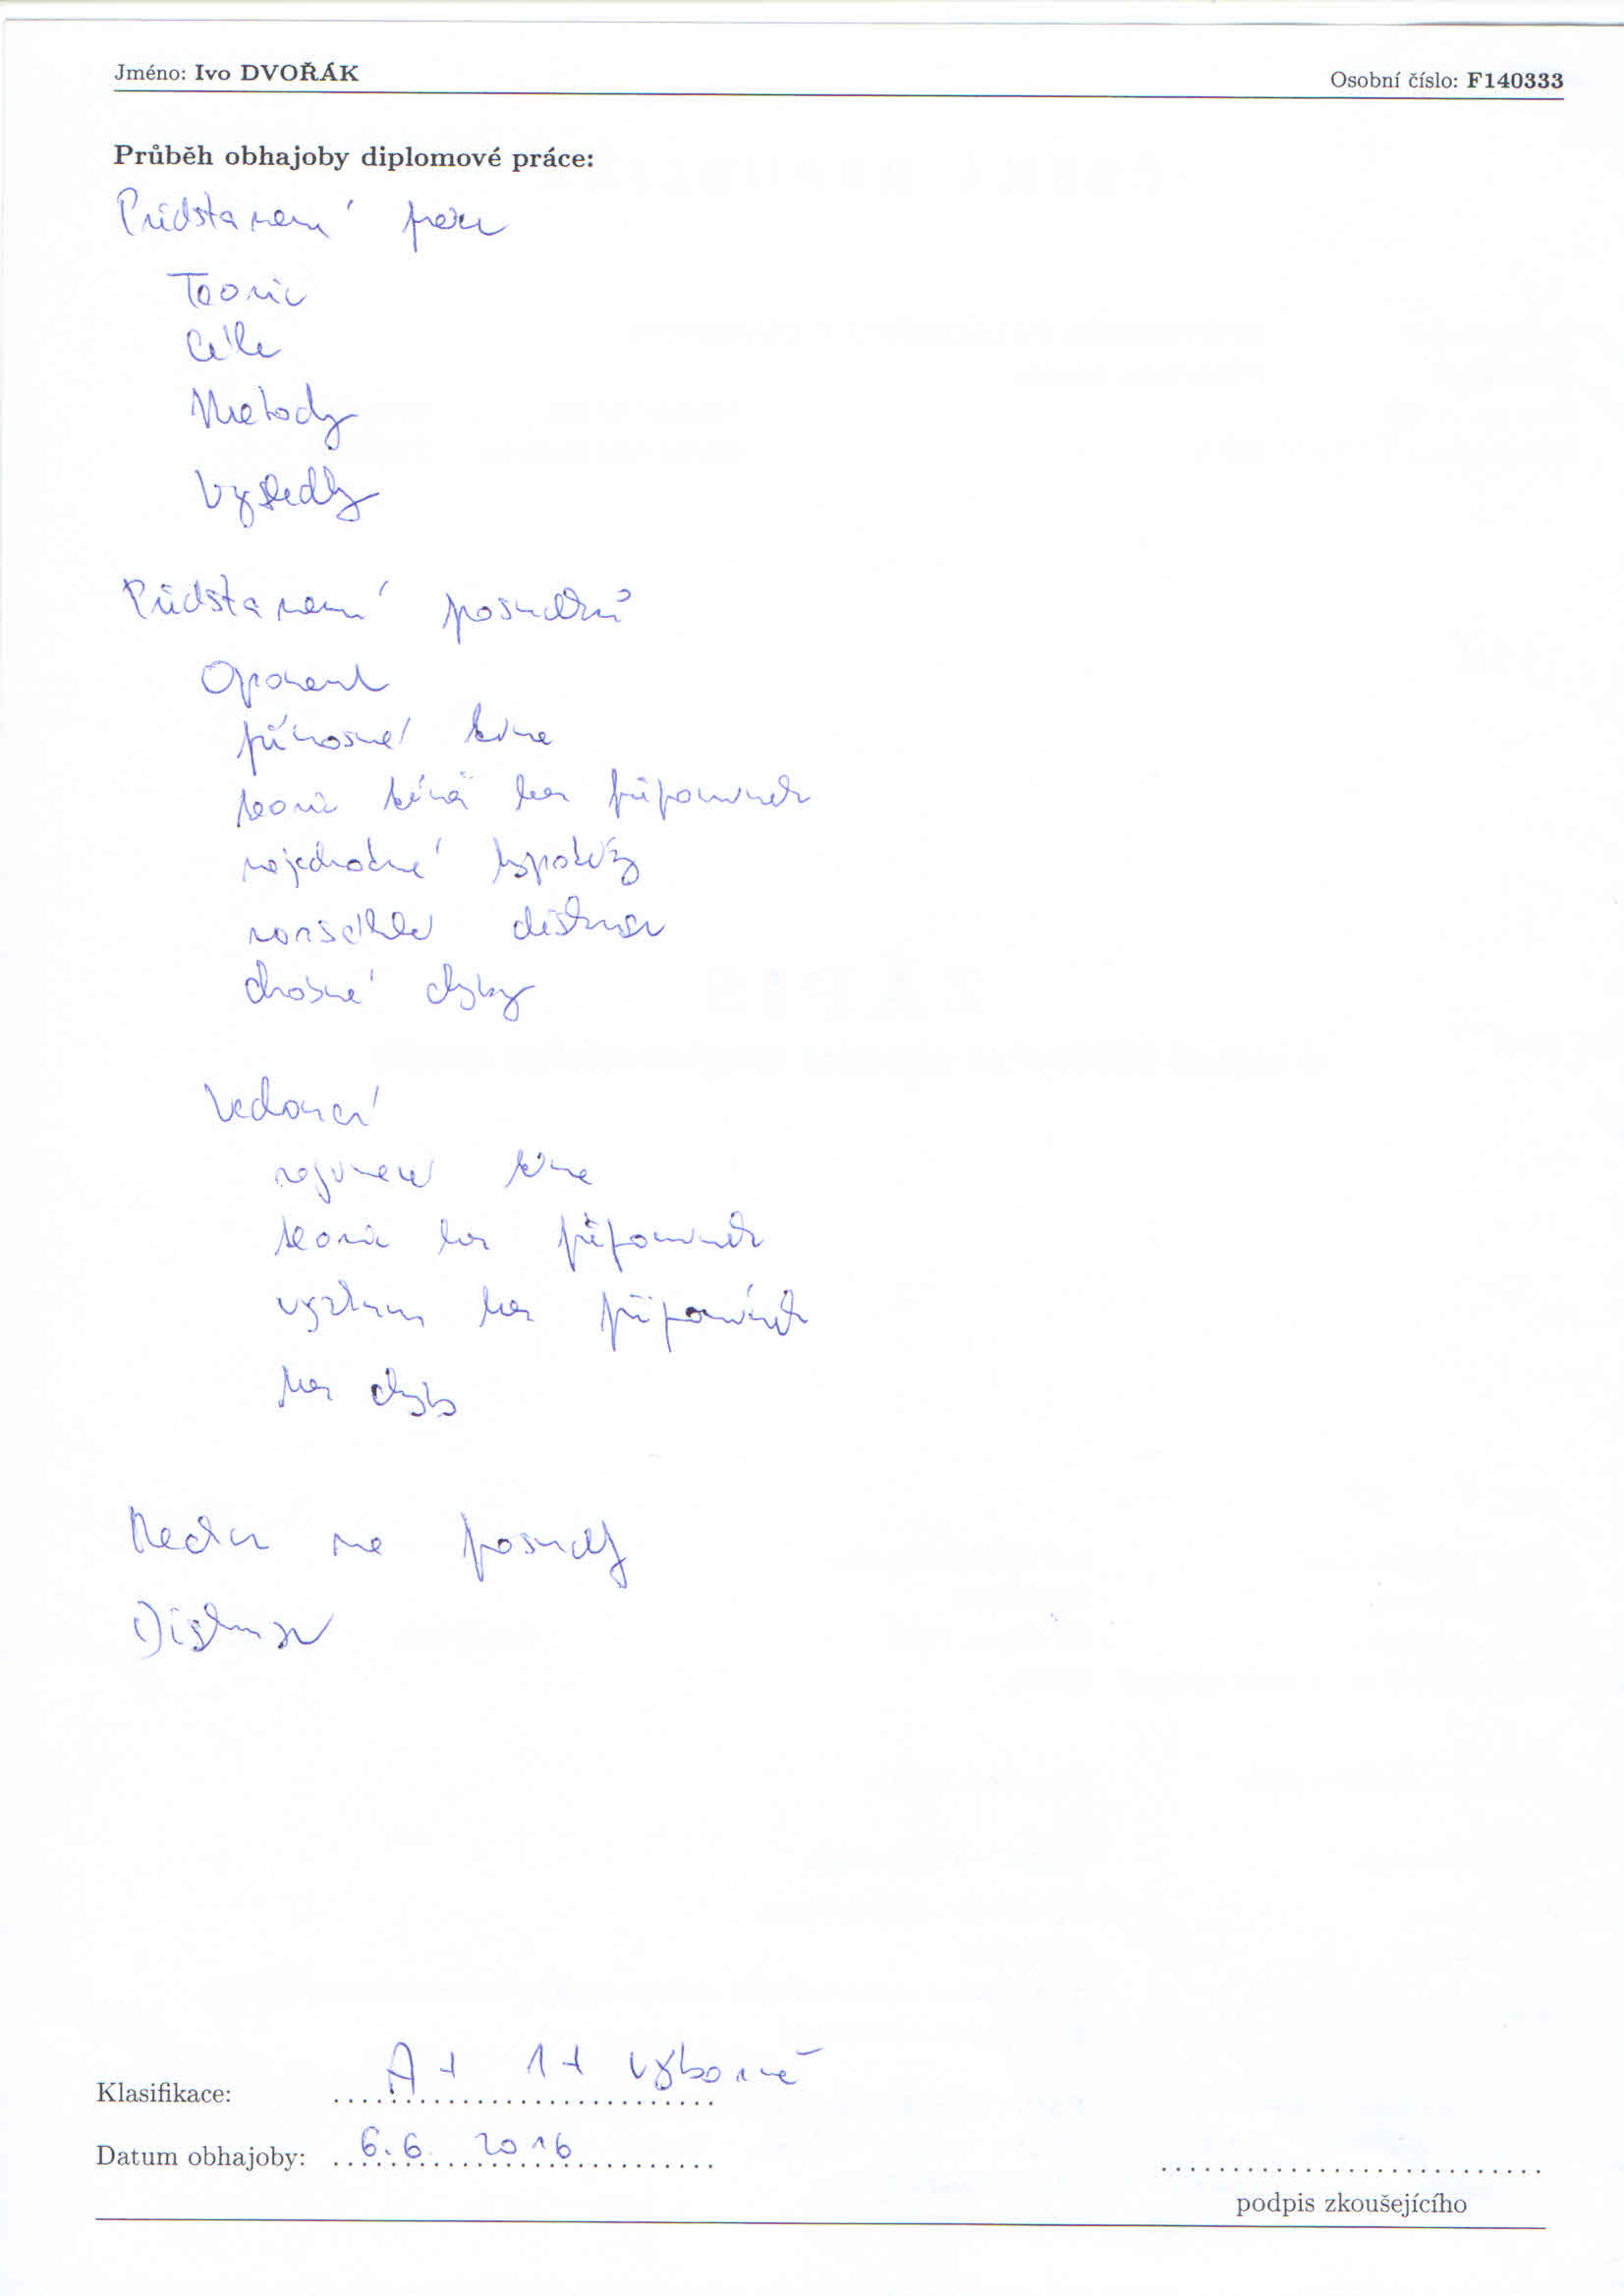 Jméno: Ivo DVOŘÁK Osobní číslo: F140333
Průběh obhajoby diplomové práce:
Představení práce
Teorie
Cíle
Metody
Výsledky
Představení posudků
Oponent
přínosné téma
teorie téměř bez připomínek
nejednotné hypotézy
diskuse
drobné chyby
Vedoucí
téma
teorie bez připomínek
výzkum bez připomínek
bez chyb
Reakce na posudky
Diskuse
Klasifikace: A+ 1+ výborně
Datum obhajoby: 6.6. 2016
podpis zkoušejícího